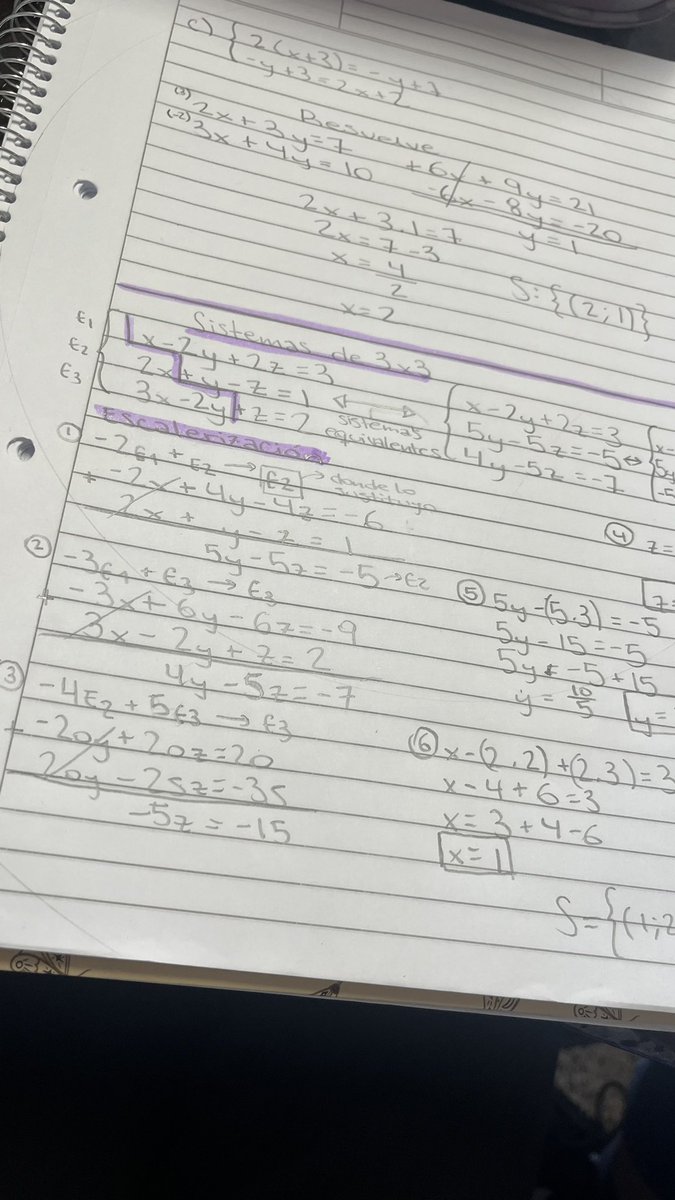 c) { 2(x+3)=-y+7
-y+3=2x+2
Resuelve
(3) 2x+3y=7
(-2) 3x+4y=10
+6x+9y=21
-6x-8y=-20
y=1
2x+3.1=7
2x=7-3
x=4/2
x=2
S:{(2;1)}
Sistemas de 3x3
E1 x-2y+2z=3
E2 2x+y-z=1
E3 3x-2y+z=2
sistemas
equivalentes
x-2y+2z=3
5y-5z=-5
4y-5z=-7
Escalerización
① -2E1+E2→E2 → donde lo
sustituyo
+ -2x+4y-4z=-6
2x+y-z=1
5y-5z=-5→E2
② -3E1+E3→E3
+ -3x+6y-6z=-9
3x-2y+z=2
4y-5z=-7
③ -4E2+5E3→E3
+ -20y+20z=20
20y-25z=-35
-5z=-15
④ z=
⑤ 5y-(5.3)=-5
5y-15=-5
5y=-5+15
y=10/5
y=
⑥ x-(2.2)+(2.3)=3
x-4+6=3
x=3+4-6
x=1
S={(1;2